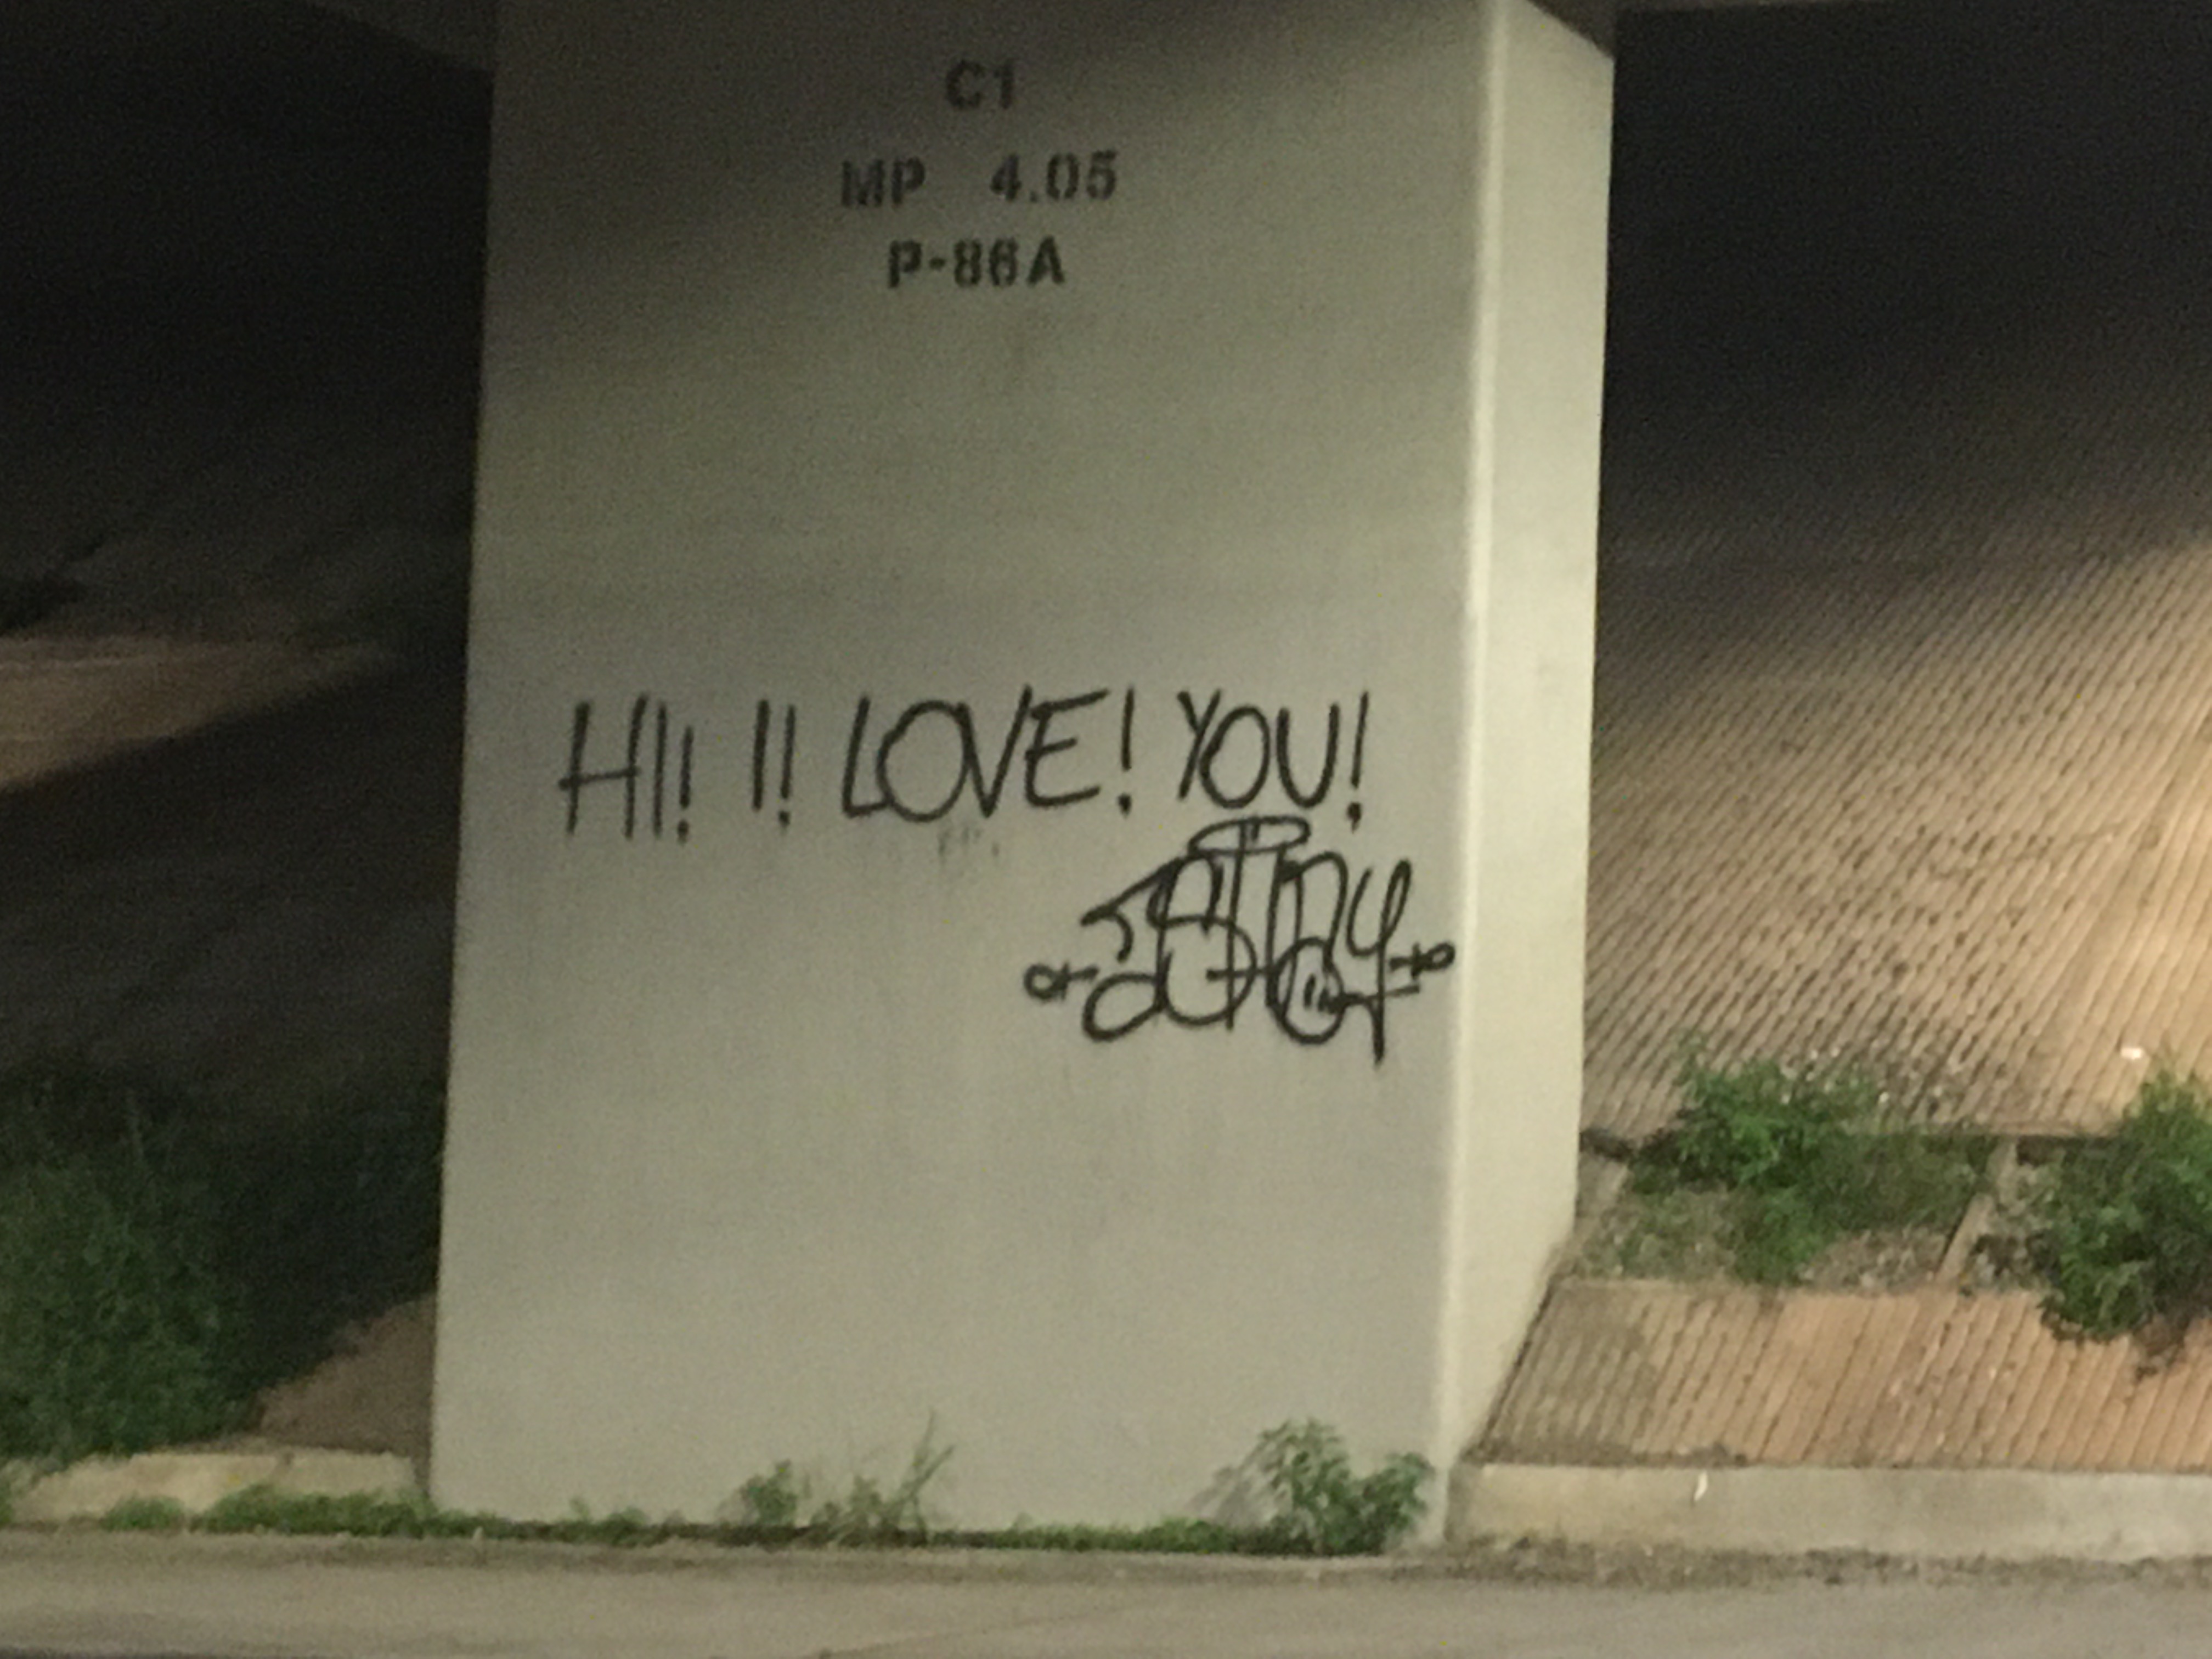 C1
MP 4.05
P-86A
HI! I! LOVE! YOU!